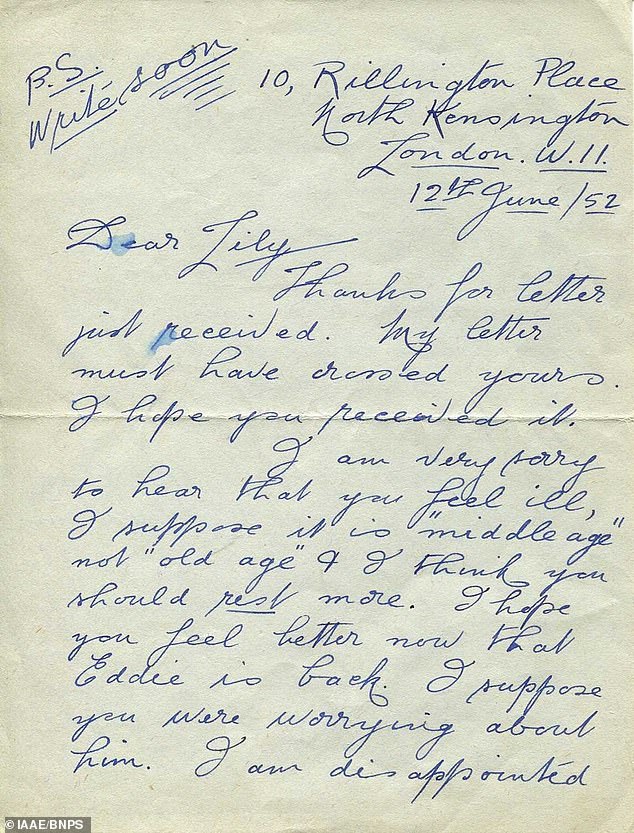 P.S.
Write soon
10, Rillington Place
North Kensington
London. W.11.
12th June/52
Dear Lily
Thanks for letter
just received. My letter
must have crossed yours.
I hope you received it.
I am very sorry
to hear that you feel ill,
I suppose it is "middle age"
not "old age" & I think you
should rest more. I hope
you feel better now that
Eddie is back. I suppose
you were worrying about
him. I am disappointed
© IAAE/BNPS